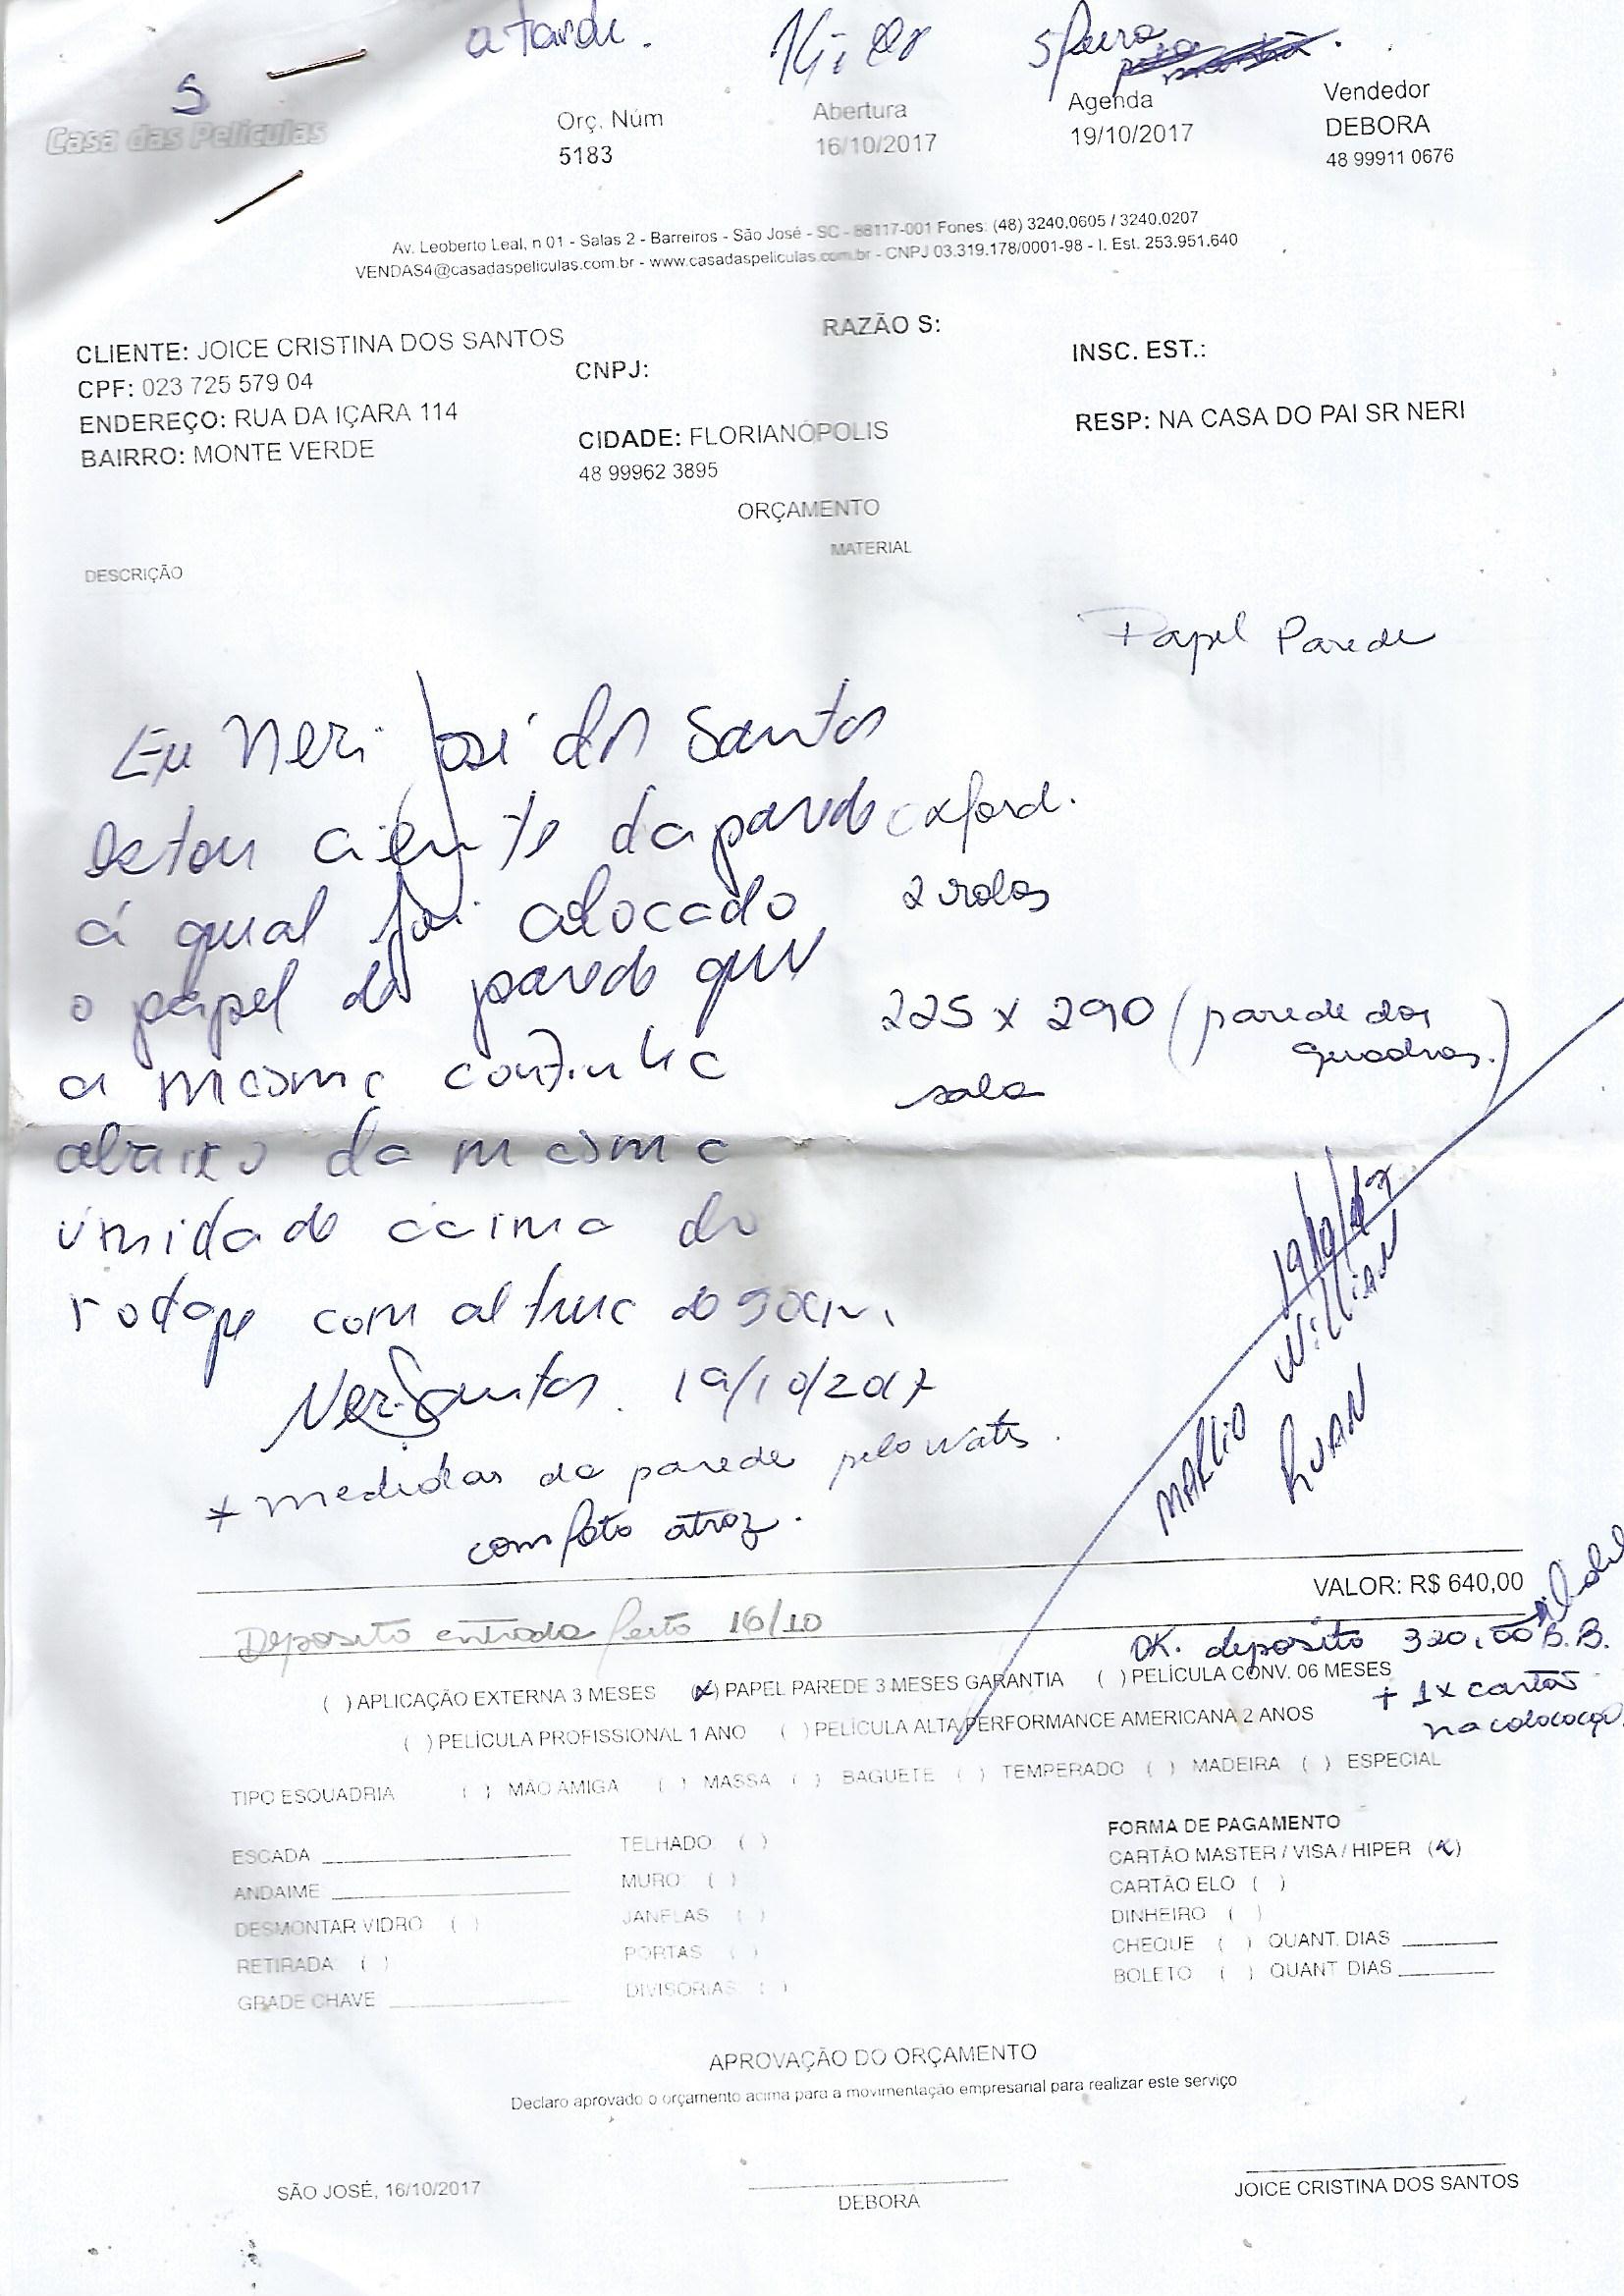 a tarde. 14:00 5 feira
5
Casa das Películas
Orç. Núm
5183
Abertura
16/10/2017
Agenda
19/10/2017
Vendedor
DEBORA
48 99911 0676
Av. Leoberto Leal, n 01 - Salas 2 - Barreiros - São José - SC - 88117-001 Fones: (48) 3240.0605 / 3240.0207
VENDAS4@casadaspeliculas.com.br - www.casadaspeliculas.com.br - CNPJ 03.319.178/0001-98 - I. Est. 253.951.640
CLIENTE: JOICE CRISTINA DOS SANTOS
CPF: 023 725 579 04
ENDEREÇO: RUA DA IÇARA 114
BAIRRO: MONTE VERDE
CNPJ:
CIDADE: FLORIANÓPOLIS
48 99962 3895
RAZÃO S:
INSC. EST.:
RESP: NA CASA DO PAI SR NERI
ORÇAMENTO
MATERIAL
DESCRIÇÃO
Papel Parede
Eu Neri José dos Santos
estou ciente da parede
á qual foi colocado
o papel de parede que
a mesma continha
abaixo da mesma
úmidade acima do
rodape com altura de 90cm.
Neri Santos. 19/10/2017
oxford.
2 rolos
225 x 290 (parede dos
quadros.)
sala
19/10/17
MARCIO WILLIAN
LUAN
* medidas da parede pelo wats.
com foto atroz.
VALOR: R$ 640,00
Deposito entrada feito 16/10
OK. deposito 320,00 B.B.
+ 1x cartão
na colocação
( ) APLICAÇÃO EXTERNA 3 MESES (x) PAPEL PAREDE 3 MESES GARANTIA ( ) PELÍCULA CONV. 06 MESES
( ) PELÍCULA PROFISSIONAL 1 ANO ( ) PELÍCULA ALTA PERFORMANCE AMERICANA 2 ANOS
TIPO ESQUADRIA ( ) MÃO AMIGA ( ) MASSA ( ) BAGUETE ( ) TEMPERADO ( ) MADEIRA ( ) ESPECIAL
ESCADA
ANDAIME
DESMONTAR VIDRO ( )
RETIRADA ( )
GRADE CHAVE
TELHADO ( )
MURO ( )
JANELAS ( )
PORTAS ( )
DIVISORIAS ( )
FORMA DE PAGAMENTO
CARTÃO MASTER / VISA / HIPER (x)
CARTÃO ELO ( )
DINHEIRO ( )
CHEQUE ( ) QUANT. DIAS
BOLETO ( ) QUANT DIAS
APROVAÇÃO DO ORÇAMENTO
Declaro aprovado o orçamento acima para a movimentação empresarial para realizar este serviço
SÃO JOSÉ, 16/10/2017
DEBORA
JOICE CRISTINA DOS SANTOS